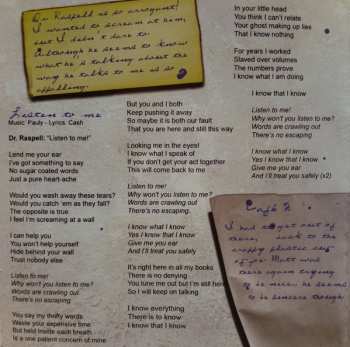 Dr. Raspell is so arrogant!
I wanted to scream at him,
but I didn't dare to.
Although he seems to know
what he is talking about the
way he talks to me is so
appalling.
Listen to me
Music: Pauly - Lyrics: Cash
Dr. Raspell: "Listen to me!"
Lend me your ear
I've got something to say
No sugar coated words
Just a pure heart-ache
Would you wash away these tears?
Would you catch 'em as they fall?
The opposite is true
I feel I'm screaming at a wall
I can help you
You won't help yourself
Hide behind your wall
Trust nobody else
Listen to me!
Why won't you listen to me?
Words are crawling out
There's no escaping.
You say my thrifty words
Waste your expensive time
But held inside each breath
Is a one patient concern of mine
But you and I both
Keep pushing it away
So maybe it is both our fault
That you are here and still this way
Looking me in the eyes!
I know what I speak of
If you don't get your act together
This will come back to me
Listen to me!
Why won't you listen to me?
Words are crawling out
There's no escaping.
I know what I know
Yes I know that I know
Give me you ear
And I'll treat you safely
It's right here in all my books
There is no denying
You tune me out but I'm still here
So I will keep on talking
I know everything
There is to know
I know that I know
In your little head
You think I can't relate
Your ghost making up lies
That I know nothing
For years I worked
Slaved over volumes
The numbers prove
I know what I am doing
I know that I know
Listen to me!
Why won't you listen to me?
Words are crawling out
There's no escaping
I know what I know
Yes I know that I know
Give me you ear
And I'll treat you safely (x2)
Café 2
I had to get out of
there, back to the
crappy plastic cup
of joe. Matt was
there again
is nice, he seems
to be sincere though